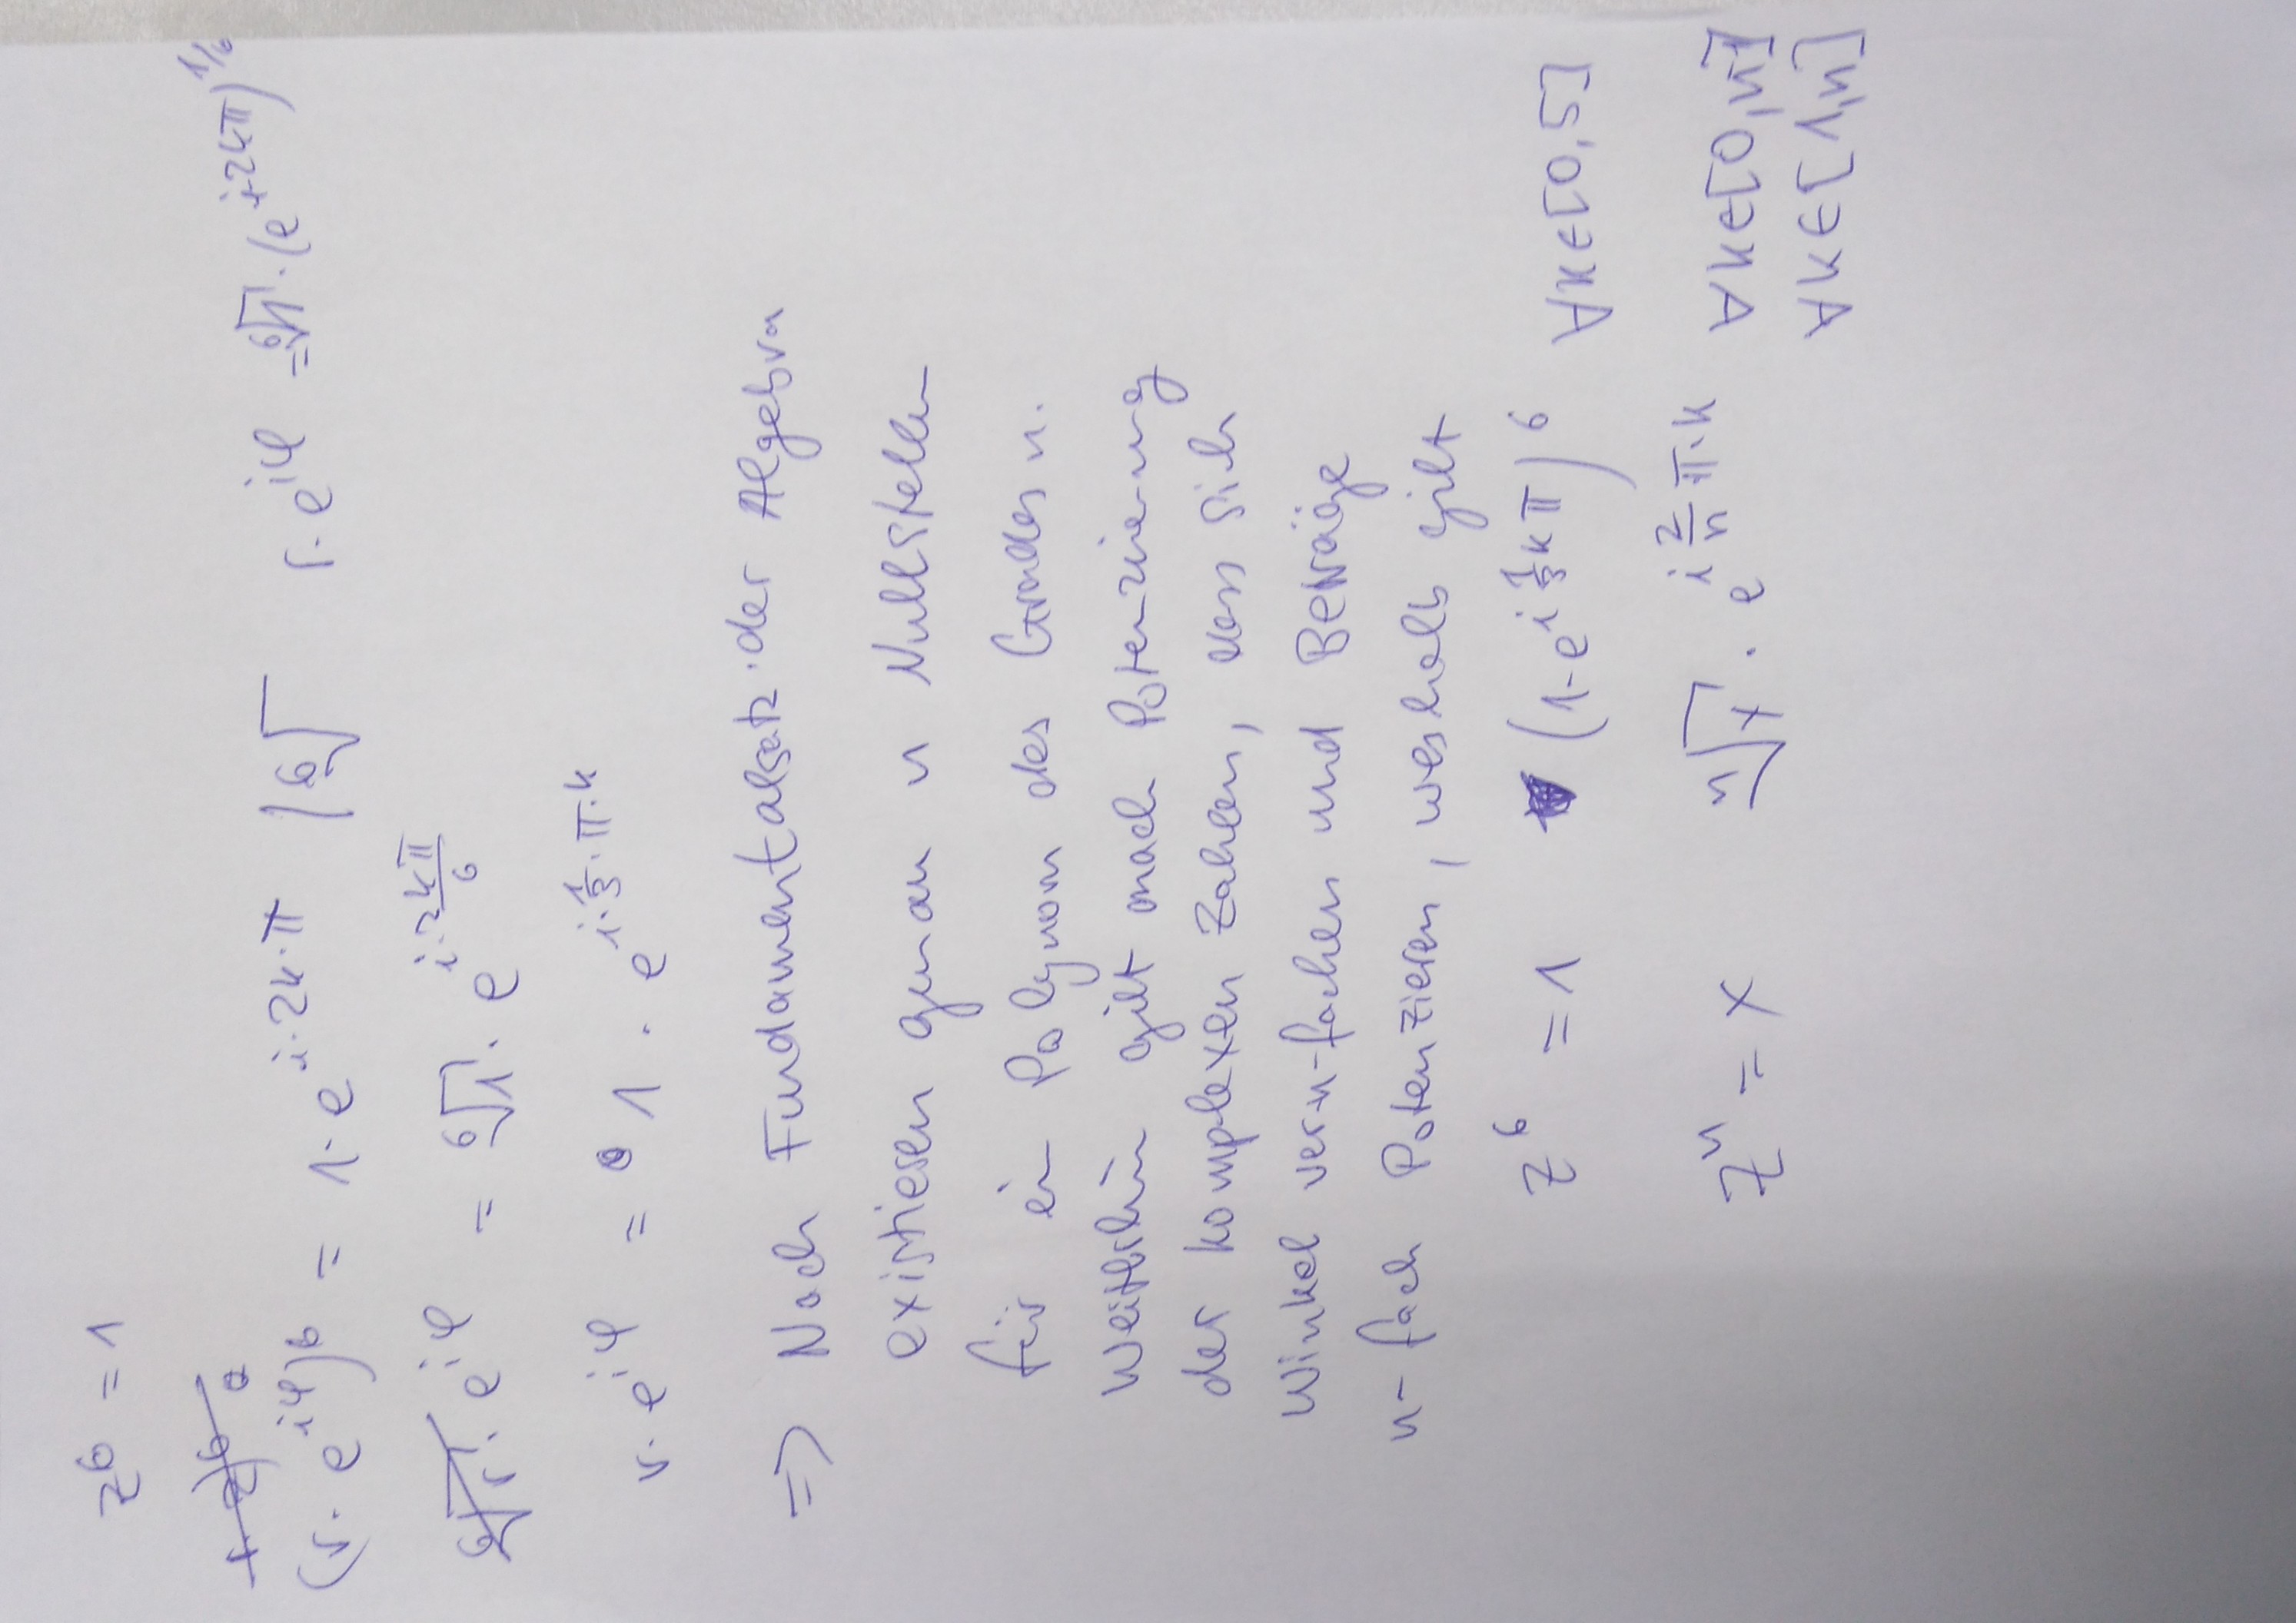 z⁶ = 1
(r · e^{iφ})⁶ = 1 · e^{i·2k·π} | ⁶√ r · e^{iφ} = ⁶√1 · (e^{i·2kπ})^{1/6}
⁶√r · e^{iφ} = ⁶√1 · e^{i·2kπ/6}
r · e^{iφ} = 1 · e^{i·1/3·π·k}
=> Nach Fundamentalsatz der Algebra
existieren genau n Nullstellen
für ein Polynom des Grades n.
Weiterhin gilt nach Potenzierung
der komplexen Zahlen, dass sich
Winkel ver-n-fachen und Beträge
n-fach Potenzieren, weshalb gilt
z⁶ = 1 (1·e^{i 1/3 k π})⁶ ∀k∈[0,5]
zⁿ = x ⁿ√x · e^{i 2/n π·k} ∀k∈[0,n-1]
∀k∈[1,n]